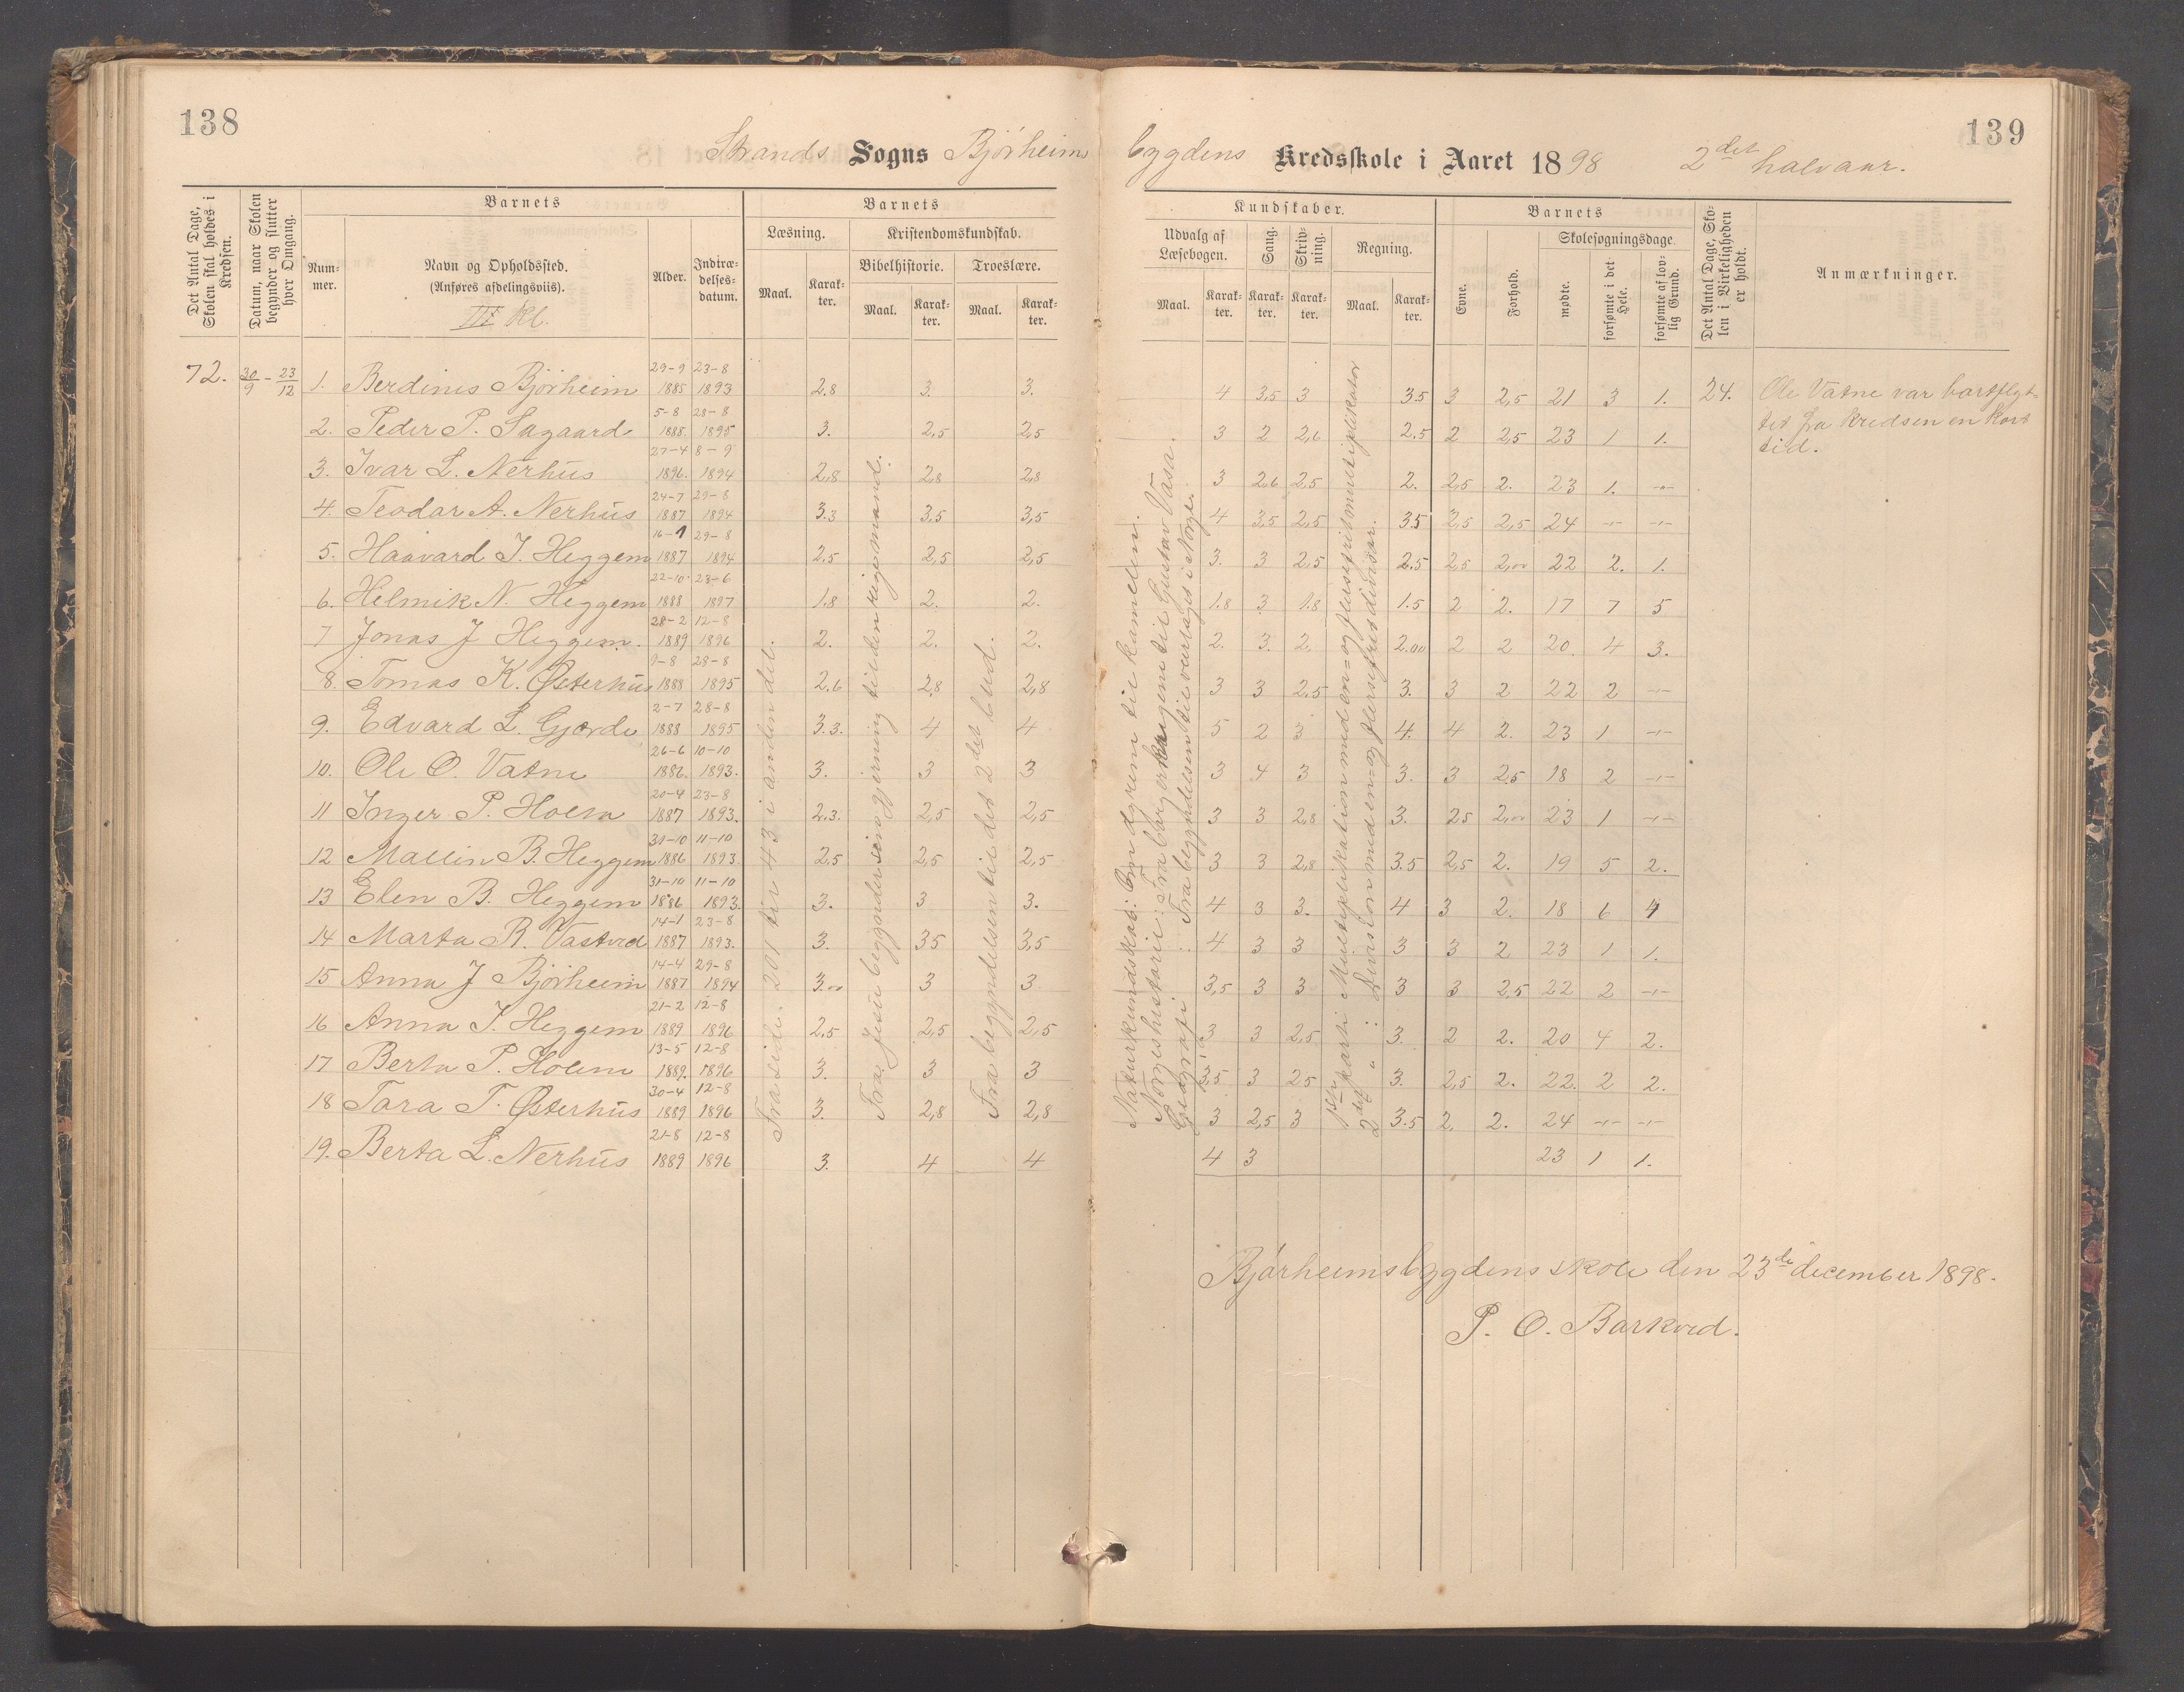 138
Strands Sogns Bjørheims
Det Antal Dage, Skolen skal holdes i Kredsen.
Datum, naar Skolen begynder og slutter hver Omgang.
Barnets
Barnets
Læsning. Kristendomskundskab.
Bibelhistorie. Troeslære.
Num-
mer.
Navn og Opholdssted.
(Anføres afdelingsviis).
III Kl.
Alder.
Indtræ-
delses-
datum.
Maal. Karak-
ter. Maal. Karak-
ter. Maal. Karak-
ter.
72. 30/9 - 23/12
1. Berdines Bjørheim 29-9 1885 23-8 1893 2.8 3. 3.
2. Peder P. Sagaard 5-8 1885. 28-8 1895 3. 2,5 2,5
3. Ivar L. Nerhus 27-4 1896. 8-9 1894 2,8 2,8 2,8
4. Teodor A. Nerhus 24-7 1887 29-8 1894 3.3 3,5 3,5
5. Haavard J. Heggem 16-1 1887 29-8 1894 2.5 2,5 2,5
6. Helmik N. Heggem 22-10 1888 23-6 1897 1.8 2. 2.
7 Jonas J Heggem. 28-2 1889 12-8 1896 2. 2. 2.
8. Tomas K. Østerhus 9-8 1888 28-8 1895 2.6 2,8 2,8
9. Edvard L. Gjerde 2-7 1888 28-8 1895 3.3. 4 4
10. Ole O. Vatne 26-6 1886. 10-10 1893. 3. 3 3
11 Inger P. Holem 20-4 1887 23-8 1893. 2.3. 2,5 2,5
12 Mallin B. Heggem 31-10 1886 11-10 1893. 2,5 2,5 2,5
13 Elen B. Heggem 31-10 1886 11-10 1893. 3. 3 3.
14 Marta R. Vastved 14-1 1887 23-8 1893. 3. 3,5 3,5
15 Anna J Bjørheim 14-4 1887 29-8 1894 3.00 3 3
16 Anna J. Heggem 21-2 1889 12-8 1896 2.5 2,5 2,5
17 Berta P. Holem 13-5 1889. 12-8 1896 3. 3 3
18 Tora T. Østerhus 30-4 1889 12-8 1896 3. 2,8 2,8
19. Berta L. Nerhus 21-8 1889 12-8 1896 3. 4 4
Fra side 201 til 43 i anden del.
Fra Jesu begynder sin gjerning til den rige mand.
Fra begyndelsen til det 2det bud.
139
bygdens Kredsskole i Aaret 1898 2det halvaar.
Kundskaber.
Barnets
Udvalg af
Læsebogen.
Sang.
Skriv-
ning.
Regning.
Maal. Karak-
ter. Karak-
ter. Karak-
ter. Maal. Karak-
ter.
Evne.
Forhold.
Skolesøgningsdage.
mødte.
forsømte i det Hele.
forsømte af lov-
lig Grund.
Det Antal Dage, Sko-
len i Virkeligheden er holdt.
Anmærkninger.
4 3,5 3 3.5 3 2,5 21 3 1. 24.
3 2 2,6 2.5 2 2,5 23 1 1.
3 2,6 2,5 2. 2,5 2. 23 1. -"-
4 3,5 2,5 3.5 2,5 2,5 24 -"- -"-
3. 3 2,5 2.5 2,5 2,00 22 2. 1.
1.8 3 1.8 1.5 2 2. 17 7 5
2. 3. 2 2.00 2 2 20. 4 3.
3 3 2.5 3. 3 2 22 2 -"-
5 2 3 4. 4 2. 23 1 -"-
3 4 3 3. 3 2.5 18 2 -"-
3 3 2,8 3. 2,5 2,00 23 1 -"-
3 3 2,8 3.5 2,5 2. 19 5 2.
4 3 3. 4 3 2. 18 6 4
4 3 3 3 3 2 23 1 1.
3,5 3 3 3 3 2,5 22 2 -"-
3 3 2,5 3. 2 2. 20 4 2.
3,5 3 2,5 3. 2,5 2. 22. 2 2.
3 2,5 3 3.5 2. 2. 24 -"- -"-
4 3 23 1 1.
Naturkundskab: Om dyrene til kamelen.
Norgeshistorie: Fra borgerkrigene til Gustav Vasa.
Geografi: Fra begyndelsen til overtaget i Norge.
1ste parti Multiplikation med en- og flersifret multiplikator
2det " : Division med en- og flersifret divisor.
Ole Vatne var bortflyt-
tet fra kredsen en kort
tid.
Bjørheimsbygdens skole den 23de december 1898.
P. O. Barkved.